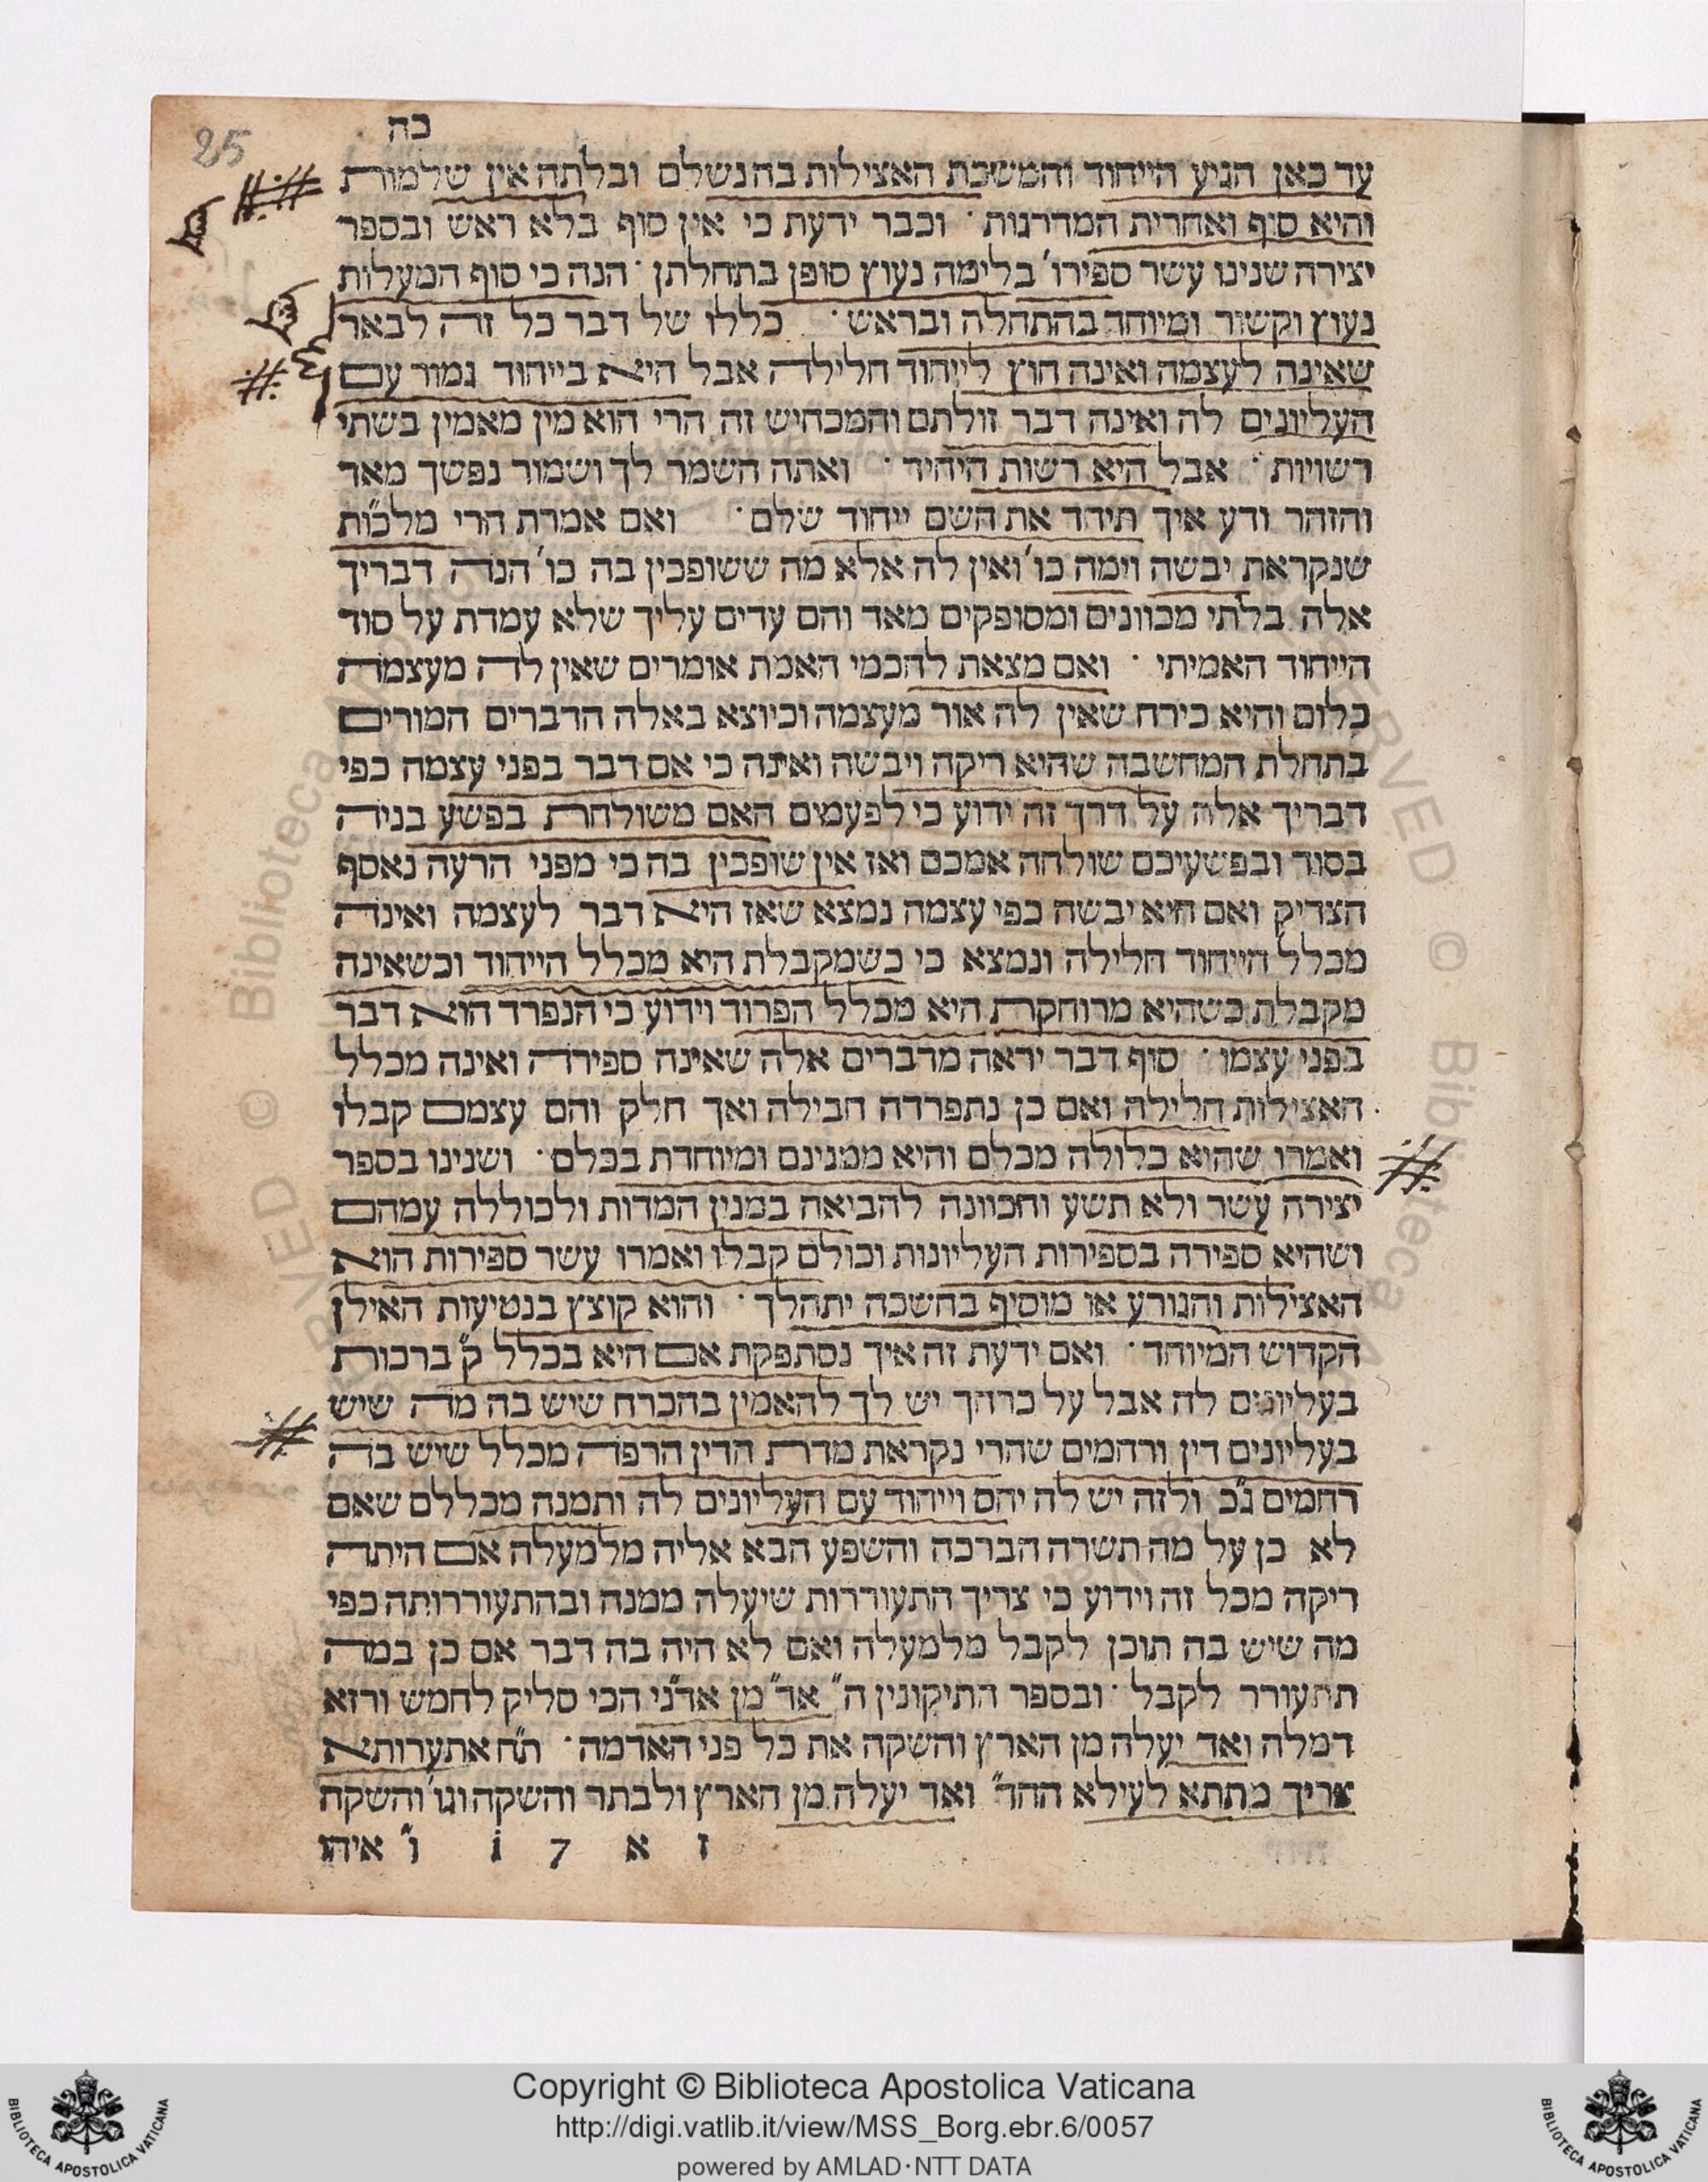 כה
25
עד כאן הגיע הייחוד והמשכת האצילות בה נשלם ובלתה אין שלמות
והיא סוף ואחרית המדרגות · וכבר ידעת כי אין סוף בלא ראש ובספר
יצירה שנינו עשר ספירו' בלימה נעוץ סופן בתחלתן · הנה כי סוף המעלות
נעוץ וקשור ומיוחד בהתחלה ובראש · כללו של דבר כל זה לבאר
שאינה לעצמה ואינה חוץ לייחוד חלילה אבל היא בייחוד גמור עם
העליונים לה ואינה דבר זולתם והמכחיש זה הרי הוא מין מאמין בשתי
רשויות · אבל היא רשות היחיד · ואתה השמר לך ושמור נפשך מאד
והזהר ודע איך תיחד את השם ייחוד שלם · ואם אמרת הרי מלכ"ות
שנקראת יבשה וימה כו' ואין לה אלא מה ששופכין בה כו' הנה דבריך
אלה בלתי מכוונים ומסופקים מאד והם עדים עליך שלא עמדת על סוד
הייחוד האמיתי · ואם מצאת לחכמי האמת אומרים שאין לה מעצמה
כלום והיא כירח שאין לה אור מעצמה וכיוצא באלה הדברים המורים
בתחלת המחשבה שהיא ריקה ויבשה ואינה כי אם דבר בפני עצמה כפי
דבריך אלה על דרך זה ידוע כי לפעמים האם משולחת בפשע בניה
בסוד ובפשעיכם שולחה אמכם ואז אין שופכין בה כי מפני הרעה נאסף
הצדיק ואם היא יבשה כפי עצמה נמצא שאז היא דבר לעצמה ואינה
מכלל הייחוד חלילה ונמצא כי כשמקבלת היא מכלל הייחוד וכשאינה
מקבלת כשהיא מרוחקת היא מכלל הפרוד וידוע כי הנפרד הוא דבר
בפני עצמו · סוף דבר יראה מדברים אלה שאינה ספירה ואינה מכלל
האצילות חלילה ואם כן נתפרדה חבילה ואך חלק והם עצמם קבלו
ואמרו שהיא כלולה מכלם והיא ממנינם ומיוחדת בכלם · ושנינו בספר
יצירה עשר ולא תשע והכוונה להביאה במנין המדות ולכוללה עמהם
ושהיא ספירה בספירות העליונות וכולם קבלו ואמרו עשר ספירות הוא
האצילות והגורע או מוסיף בחשכה יתהלך · והוא קוצץ בנטיעות האילן
הקדוש המיוחד · ואם ידעת זה איך נסתפקת אם היא בכלל ק' ברכות
בעליונים לה אבל על כרחך יש לך להאמין בהכרח שיש בה מה שיש
בעליונים דין ורחמים שהרי נקראת מדת הדין הרפה מכלל שיש בה
רחמים ג"כ ולזה יש לה יחס וייחוד עם העליונים לה ותמנה מכללם שאם
לא כן על מה תשרה הברכה והשפע הבא אליה מלמעלה אם היתה
ריקה מכל זה וידוע כי צריך התעוררות שיעלה ממנה ובהתעוררותה כפי
מה שיש בה תוכן לקבל מלמעלה ואם לא היה בה דבר אם כן במה
תתעורר לקבל · ובספר התיקונין ה" אד" מן אדנ"י הכי סליק לחמש ורזא
דמלה ואד יעלה מן הארץ והשקה את כל פני האדמה · ת"ח אתערותא
צריך מתתא לעילא ההד" ואד יעלה מן הארץ ולבתר והשקה וגו' והשקה
ז א 7 i ו" איהו
Copyright © Biblioteca Apostolica Vaticana
http://digi.vatlib.it/view/MSS_Borg.ebr.6/0057
powered by AMLAD·NTT DATA
BIBLIOTECA APOSTOLICA VATICANA
BIBLIOTECA APOSTOLICA VATICANA